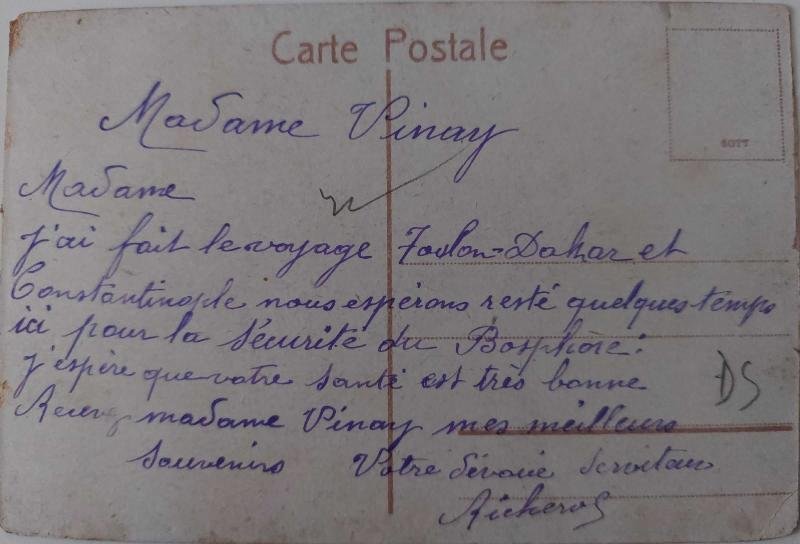 Carte Postale
Madame Vinay
Madame
j'ai fait le voyage Toulon-Dakar et
Constantinople nous espérons resté quelques temps
ici pour la sécurité du Bosphore.
j'espère que votre santé est très bonne
Recevez madame Vinay mes meilleurs
souvenirs Votre dévoué serviteur
DS